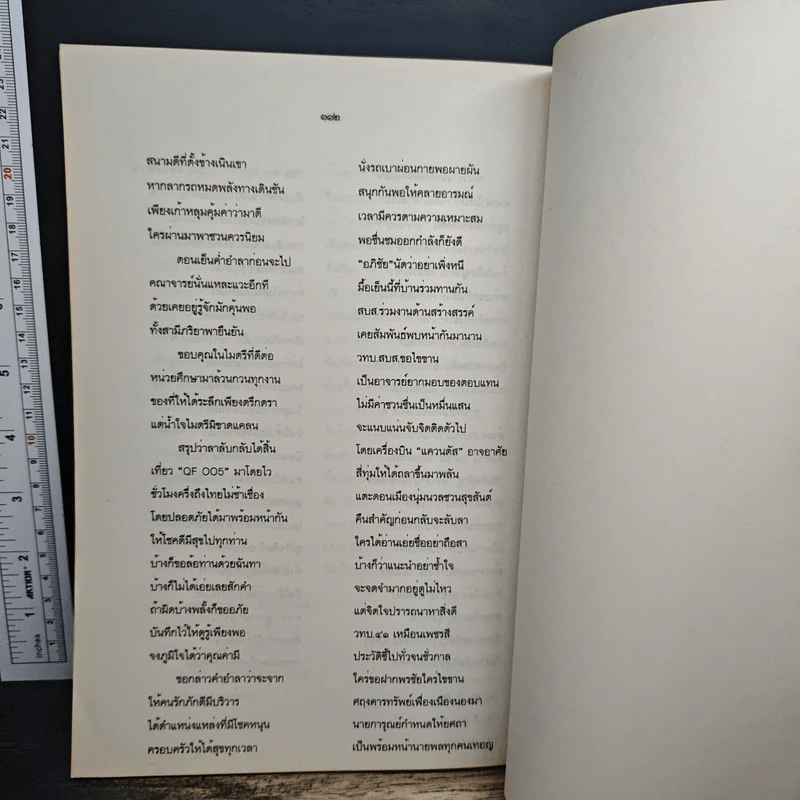 ๑๑๒
สนามดีที่ตั้งข้างเนินเขา นั่งรถเบาผ่อนกายพอผายผัน
หากลากรถหมดพลังทางเดินชัน สนุกกันพอให้คลายอารมณ์
เพียงเก้าหลุมคุ้มค่าว่ามาดี เวลามีควรตามความเหมาะสม
ใครผ่านมาพาชวนควรนิยม พอชื่นชมออกกำลังก็ยังดี
ตอนเย็นค่ำอำลาก่อนจะไป "อภิชัย"นัดว่าอย่าเพิ่งหนี
คณาจารย์นั่นแหละแวะอีกที มื้อเย็นนี้ที่บ้านร่วมทานกัน
ด้วยเคยอยู่รู้จักมักคุ้นพอ สบส.ร่วมงานด้านสร้างสรรค์
ทั้งสามีภริยาพายืนยัน เคยสัมพันธ์พบหน้ากันมานาน
ขอบคุณในไมตรีที่ดีต่อ วทบ.สบส.ขอไขขาน
หน่วยศึกษามาล้วนกวนทุกงาน เป็นอาจารย์ยากมอบของตอบแทน
ของที่ให้ได้ระลึกเพียงตรึกตรา ไม่มีค่าชวนชื่นเป็นหมื่นแสน
แต่น้ำใจไมตรีมิขาดแคลน จะแนบแน่นจับจิตติดตัวไป
สรุปว่าลาลับกลับได้สิ้น โดยเครื่องบิน "แควนตัส" อาจอาศัย
เที่ยว "QF 005" มาโดยไว สี่ทุ่มให้ได้ถลาขึ้นมาพลัน
ชั่วโมงครึ่งถึงไทยไม่ช้าเชื่อง แตะดอนเมืองนุ่มนวลชวนสุขสันต์
โดยปลอดภัยได้มาพร้อมหน้ากัน คืนสำคัญก่อนกลับจะลับลา
ให้โชคดีมีสุขไปทุกท่าน ใครได้อ่านเอยชื่ออย่าถือสา
บ้างก็ขอล้อท่านด้วยฉันทา บ้างก็ว่าแนะนำอย่าช้ำใจ
บ้างก็ไม่ได้เอ่ยเลยสักคำ จะจดจำมากอยู่ดูไม่ไหว
ถ้าผิดบ้างพลั้งก็ขออภัย แต่จิตใจปรารถนาหาสิ่งดี
บันทึกไว้ให้ดูรู้เพียงพอ วทบ.๔๑ เหมือนเพชรสี
จงภูมิใจได้ว่าคุณค่ามี ประวัติชี้ไปทั่วจนชั่วกาล
ขอกล่าวคำอำลาว่าจะจาก ใคร่ขอฝากพรชัยใคร่ไขขาน
ให้คนรักภักดีมีบริวาร ศฤงคารทรัพย์เฟื่องเนืองนองมา
ได้ตำแหน่งแหล่งที่มีโชคหนุน นายการุณย์กำหนดให้ยศถา
ครอบครัวให้ได้สุขทุกเวลา เป็นพร้อมหน้านายพลทุกคนเทอญ